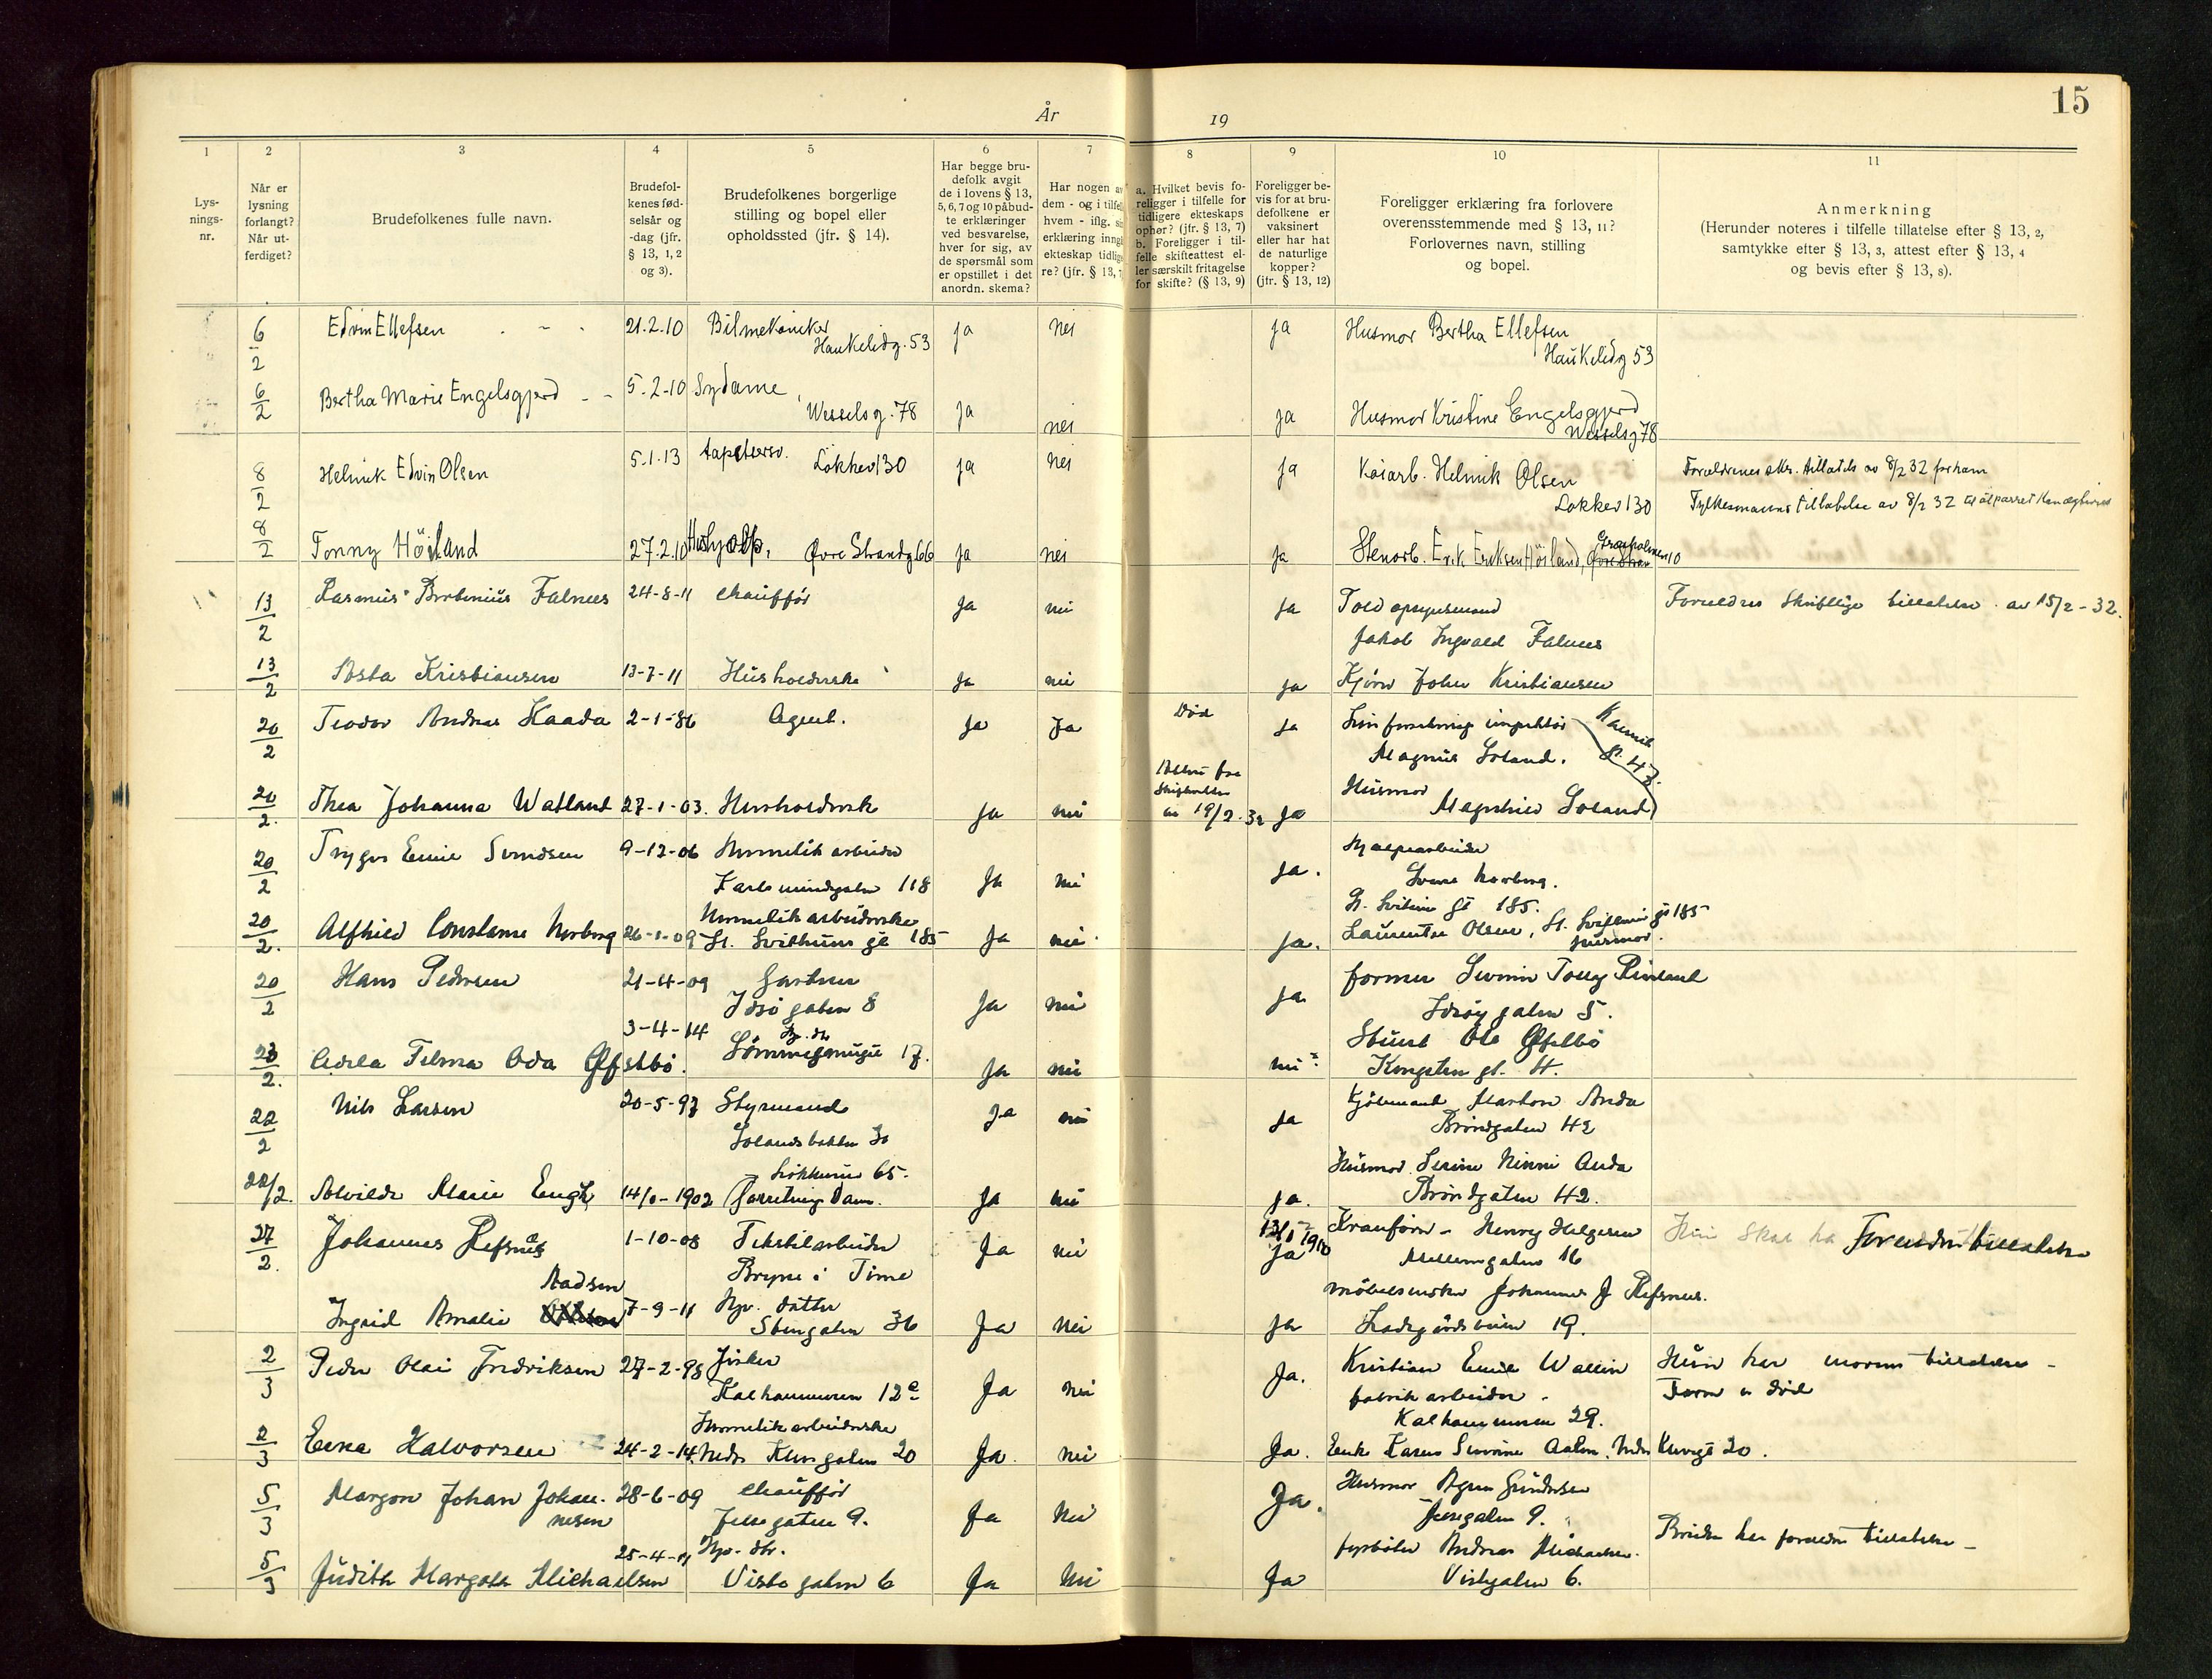 År
19
15
1
2
3
4
5
6
7
8
9
10
11
Lys-
nings-
nr.
Når er
lysning
forlangt?
Når ut-
ferdiget?
Brudefolkenes fulle navn.
Brudefol-
kenes fød-
selsår og
-dag (jfr.
§ 13, 1, 2
og 3).
Brudefolkenes borgerlige
stilling og bopel eller
opholdssted (jfr. § 14).
Har begge bru-
defolk avgit
de i lovens § 13,
5, 6, 7 og 10 påbud-
te erklæringer
ved besvarelse,
hver for sig, av
de spørsmål som
er opstillet i det
anordn. skema?
Har nogen av
dem - og i tilfel
hvem - iflg. si
erklæring inng
ekteskap tidlig
re? (jfr. § 13, 7
a. Hvilket bevis fo-
religger i tilfelle for
tidligere ekteskaps
ophør? (jfr. § 13, 7)
b. Foreligger i til-
felle skifteattest el-
ler særskilt fritagelse
for skifte? (§ 13, 9)
Foreligger be-
vis for at bru-
defolkene er
vaksinert
eller har hat
de naturlige
kopper?
(jfr. § 13, 12)
Foreligger erklæring fra forlovere
overensstemmende med § 13, 11?
Forlovernes navn, stilling
og bopel.
Anmerkning
(Herunder noteres i tilfelle tillatelse efter § 13, 2,
samtykke efter § 13, 3, attest efter § 13, 4
og bevis efter § 13, 8).
6/2 Edvin Ellefsen 21.2.10 Bilmekaniker ja nei ja Husmor Bertha Ellefsen
Haukelidg. 53 Haukelidg 53
6/2 Bertha Marie Engelsgjerd 5.2-10 Sydame, ja nei ja Husmor Kristine Engelsgjerd
Wesselsg. 78 Wesselsg 78
8/2 Helmik Edvin Olsen 5.1.13 tapetserer. Løkkev 130 ja nei ja Kaiarb. Helmik Olsen
Løkkev 130
Forældrenes skr. tillatels av 8/2 32 for ham
Fylkesmanns tillatelse av 8/2 32
8/2 Tonny Höiland 27.2.10 Øvre Strandg 66 ja nei ja Stenarb. Erik Eriksen Höiland,
10
13/2 Rasmus Falnes 24-8-11 chauffør ja nei ja
Jakob Ingvald Falnes
Foreldres skriftlige tillatelse av 15/2-32.
13/2 Asta Kristiansen 13-7-11 Husholderske ja nei ja John Kristiansen
20/2 Teodor Andreas Haada 2-1-86 Agent. ja Ja Død ja
Magnus Soland.
20/2. Thea Johanna Watland 27-1-03. Husholdersk ja nei 19/2-32 ja Husmor
Magnhild Soland
20/2 Trygve Emil Svendsen 9-12-06 Hermetik arbeider ja nei ja. Hjelpearbeider
Karlsmindegaten 118
Norberg.
St. Svituns gt 185.
20/2. Alfhild Constanse Norberg 26-1-09 Hermetik arbeiderske ja nei. ja. Olsen, St. Svithuns gt 185
St. Svithuns gt 185 husmor.
20/2 Hans Pedersen 21-4-09 Gartner ja nei ja former
Idsøgaten 8 Idsøy gaten 5.
23/2. Tilma Oda Øfstbø. 3-4-14 17. ja nei nei Stuert Ole Øfstbø
Kongsten gt. 4.
22/2 Nils Larsen 20-5-97 Styrmand ja nei ja Kjøbmand Marton Anda
Solandsbakken 30 Brøndgaten 42
22/2. Alvilde Marie Engh 14/ - 1902 Løkkeveien 65. ja nei ja. Husmor Serine Ninni Anda
Forretnings Dame. Brøndgaten 42.
27/2. Johannes Refsnes 1-10-08 Tekstilarbeider Ja nei ja Kranfører - Henry Helgesen
Bryne i Time Møllegaten 16
Hun skal ha Foreldres tillatelse
Ingrid Amalie Madsen 7-9-11 Hjv. datter Ja nei ja møbelsnekker Johannes J Refsnes.
Stengaten 36 Ladegårdsveien 19.
2/3 Peder Olai Fredriksen 27-2-98 Fisker Ja nei Ja. Kristian Emil Wallin
Kalhammeren 12a fabrik arbeider -
Kalhammeren 29.
Hun har morens tillatelse -
Faren er død
2/3 Erna Halvorsen 24-2-14 Hermetik arbeiderske Ja nei Ja. Enke Karen Severine Aalen, Nedre Kleivgt 20.
Nedre Kleivgaten 20
5/3 Margon Johan Johan- 28-6-09 chauffør Ja nei Ja. Husmor Agnes Gundersen
nesen Jellegaten 9. 9.
5/3 Judith Margoth Michaelsen 25-4-11 Hjv. dtr. Ja nei Ja fyrbøter Andreas Michaelsen.
Vistegaten 6 Vistegaten 6.
Bruden har foreldres tillatelse -